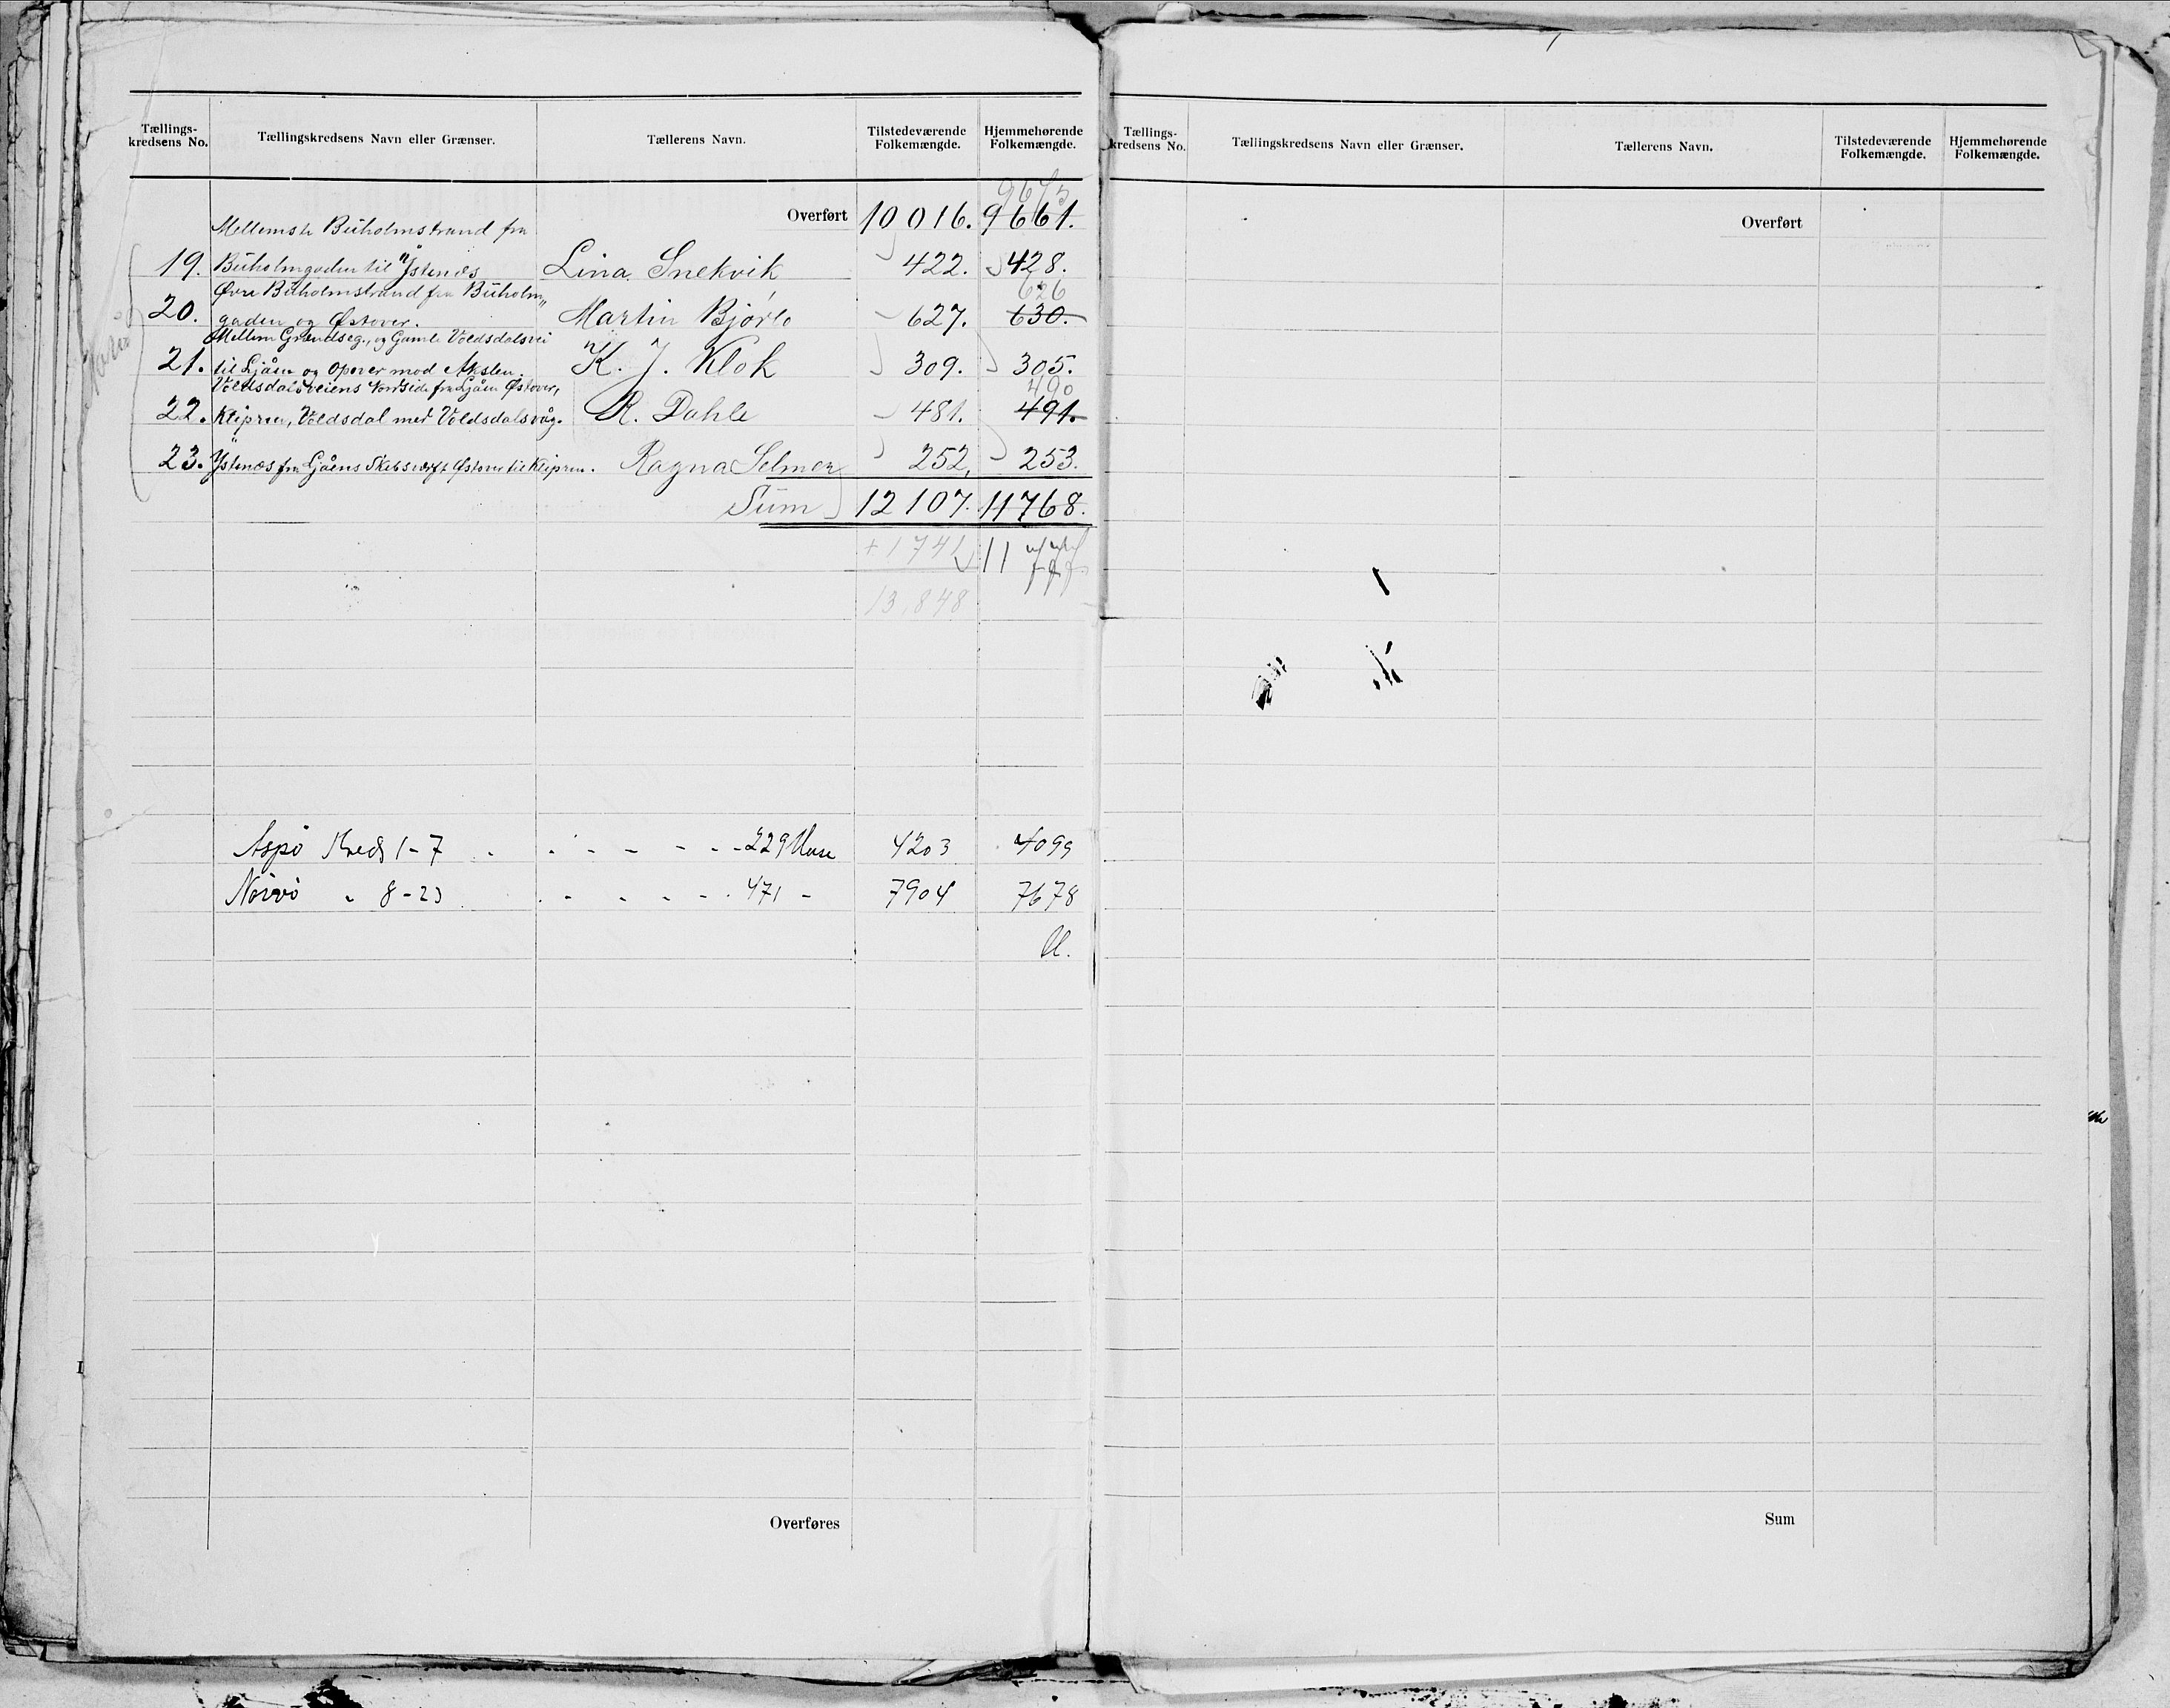 Tællings- kredsens No. Tællingskredsens Navn eller Grænser. Tællerens Navn. Tilstedeværende Folkemængde. Hjemmehørende Folkemængde.
9675
Overført 10 016. 9661.
Mellemste Buholmstrand fra
19. Buholmgaden til Ystenæs Lina Snekvik 422. 428.
Øvre Buholmstrand fra Buholm„ 626
20. gaden og Østover. Martin Bjørlo 627. 630.
Mellem Grændseg., og Gamle Voldsdalsvei
21. til Ljåen og Opover mod Akslen. K. J. Klok 309. 305.
Voldsdalsveiens Nordside fra Ljåen Østover, 490
22. Klipren, Voldsdal med Voldsdalsvåg. R. Dahle 481. 491.
23. Ystenæs fra Ljåens Skibsverft Østover til Klipren. Ragna Selmer 252, 253.
Sum 12 107. 11768.
+ 1741 11 777
13,848
Aspö Kreds 1-7 229 Huse 4203 4099
Nörvö " 8-23 471 - 7904 7678
Overføres
Tællings- kredsens No. Tællingskredsens Navn eller Grænser. Tællerens Navn. Tilstedeværende Folkemængde. Hjemmehørende Folkemængde.
Overført
Sum